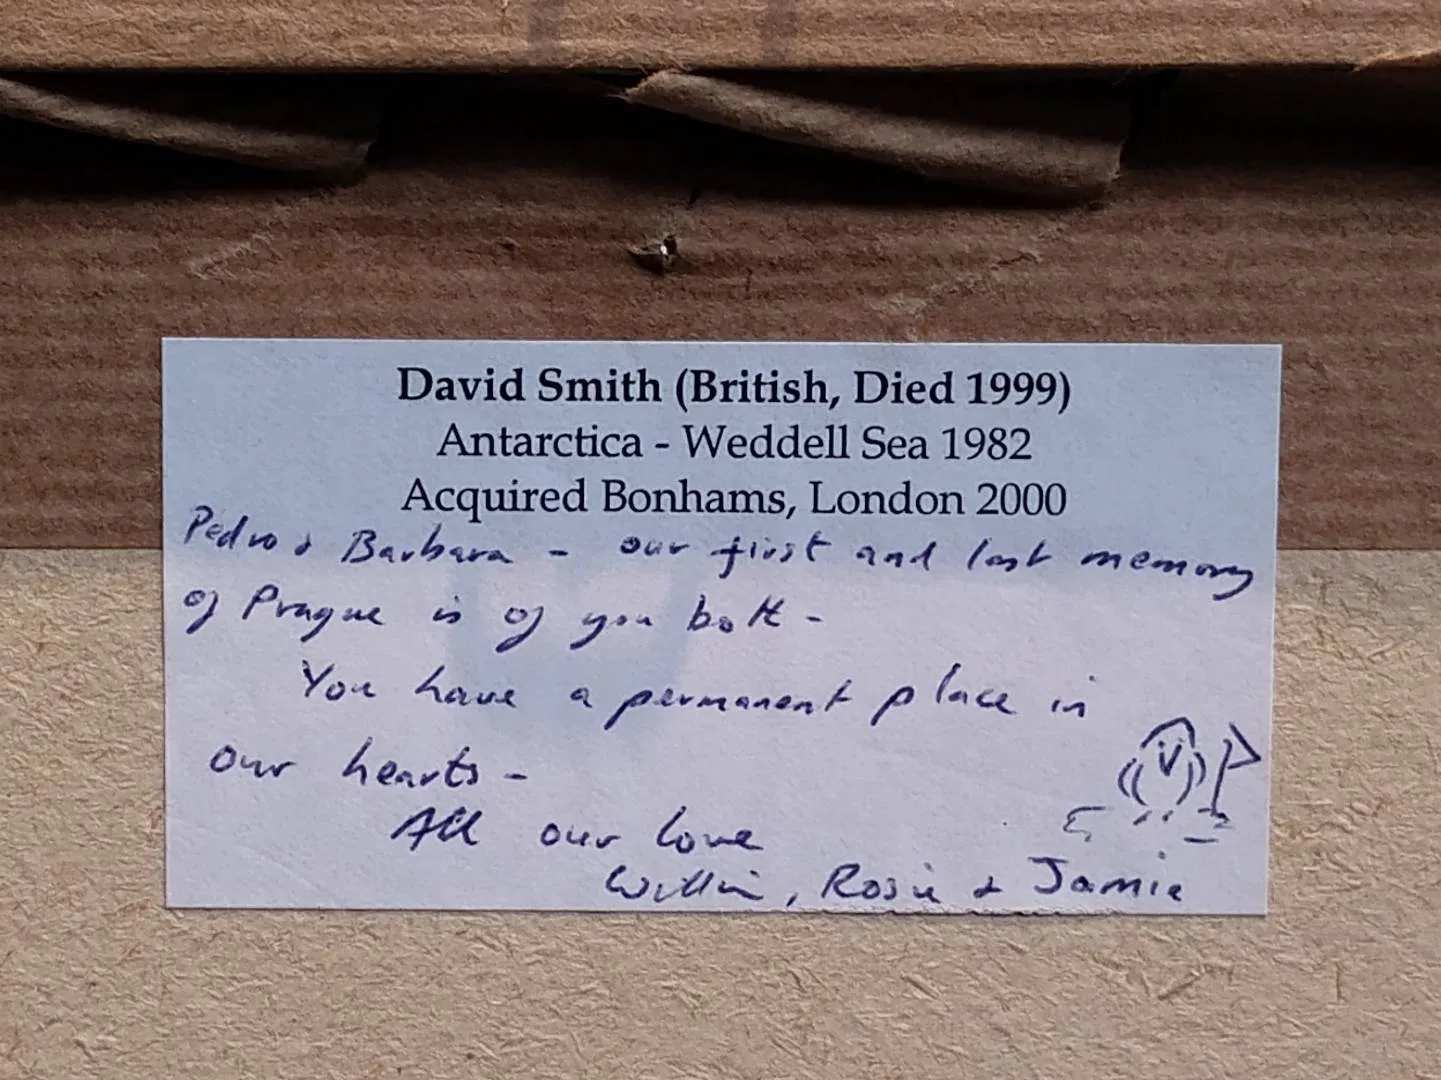 David Smith (British, Died 1999)
Antarctica - Weddell Sea 1982
Acquired Bonhams, London 2000
Pedro & Barbara - our first and last memory
of Prague is of you both -
You have a permanent place in
our hearts -
All our love
Rosie & Jamie